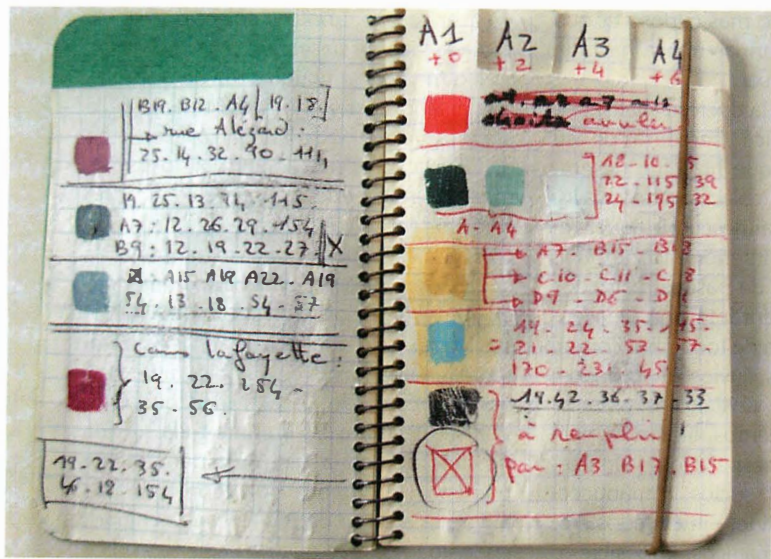 B19. B12. A4 [19.18.]
rue
25. 14. 32. 90 - 111,
19. 25. 13. 94. 115.
A7: 12. 26. 29. 154
B9: 12. 19. 22. 27 X
A15 A19 A22. A19
54. 13. 18. 54 - 57
cours lafayette:
19. 22. 254 -
35 - 56.
19. 22. 35.
46. 18. 154
A1 A2 A3 A4
+0 +2 +4 +6
annuler
18 - 10 - 5
22 - 115 - 39
24 - 195 - 32
A - A4
A7 - B15 - B18
C10 - C11 - C 8
D9 - D6 - D
19 - 24 - 35 - 115 -
= 21 - 22 - 53 - 57 -
170 - 231 - 45
19. 42. 36. 37 - 33
à remplir !
par : A3 B17. B15